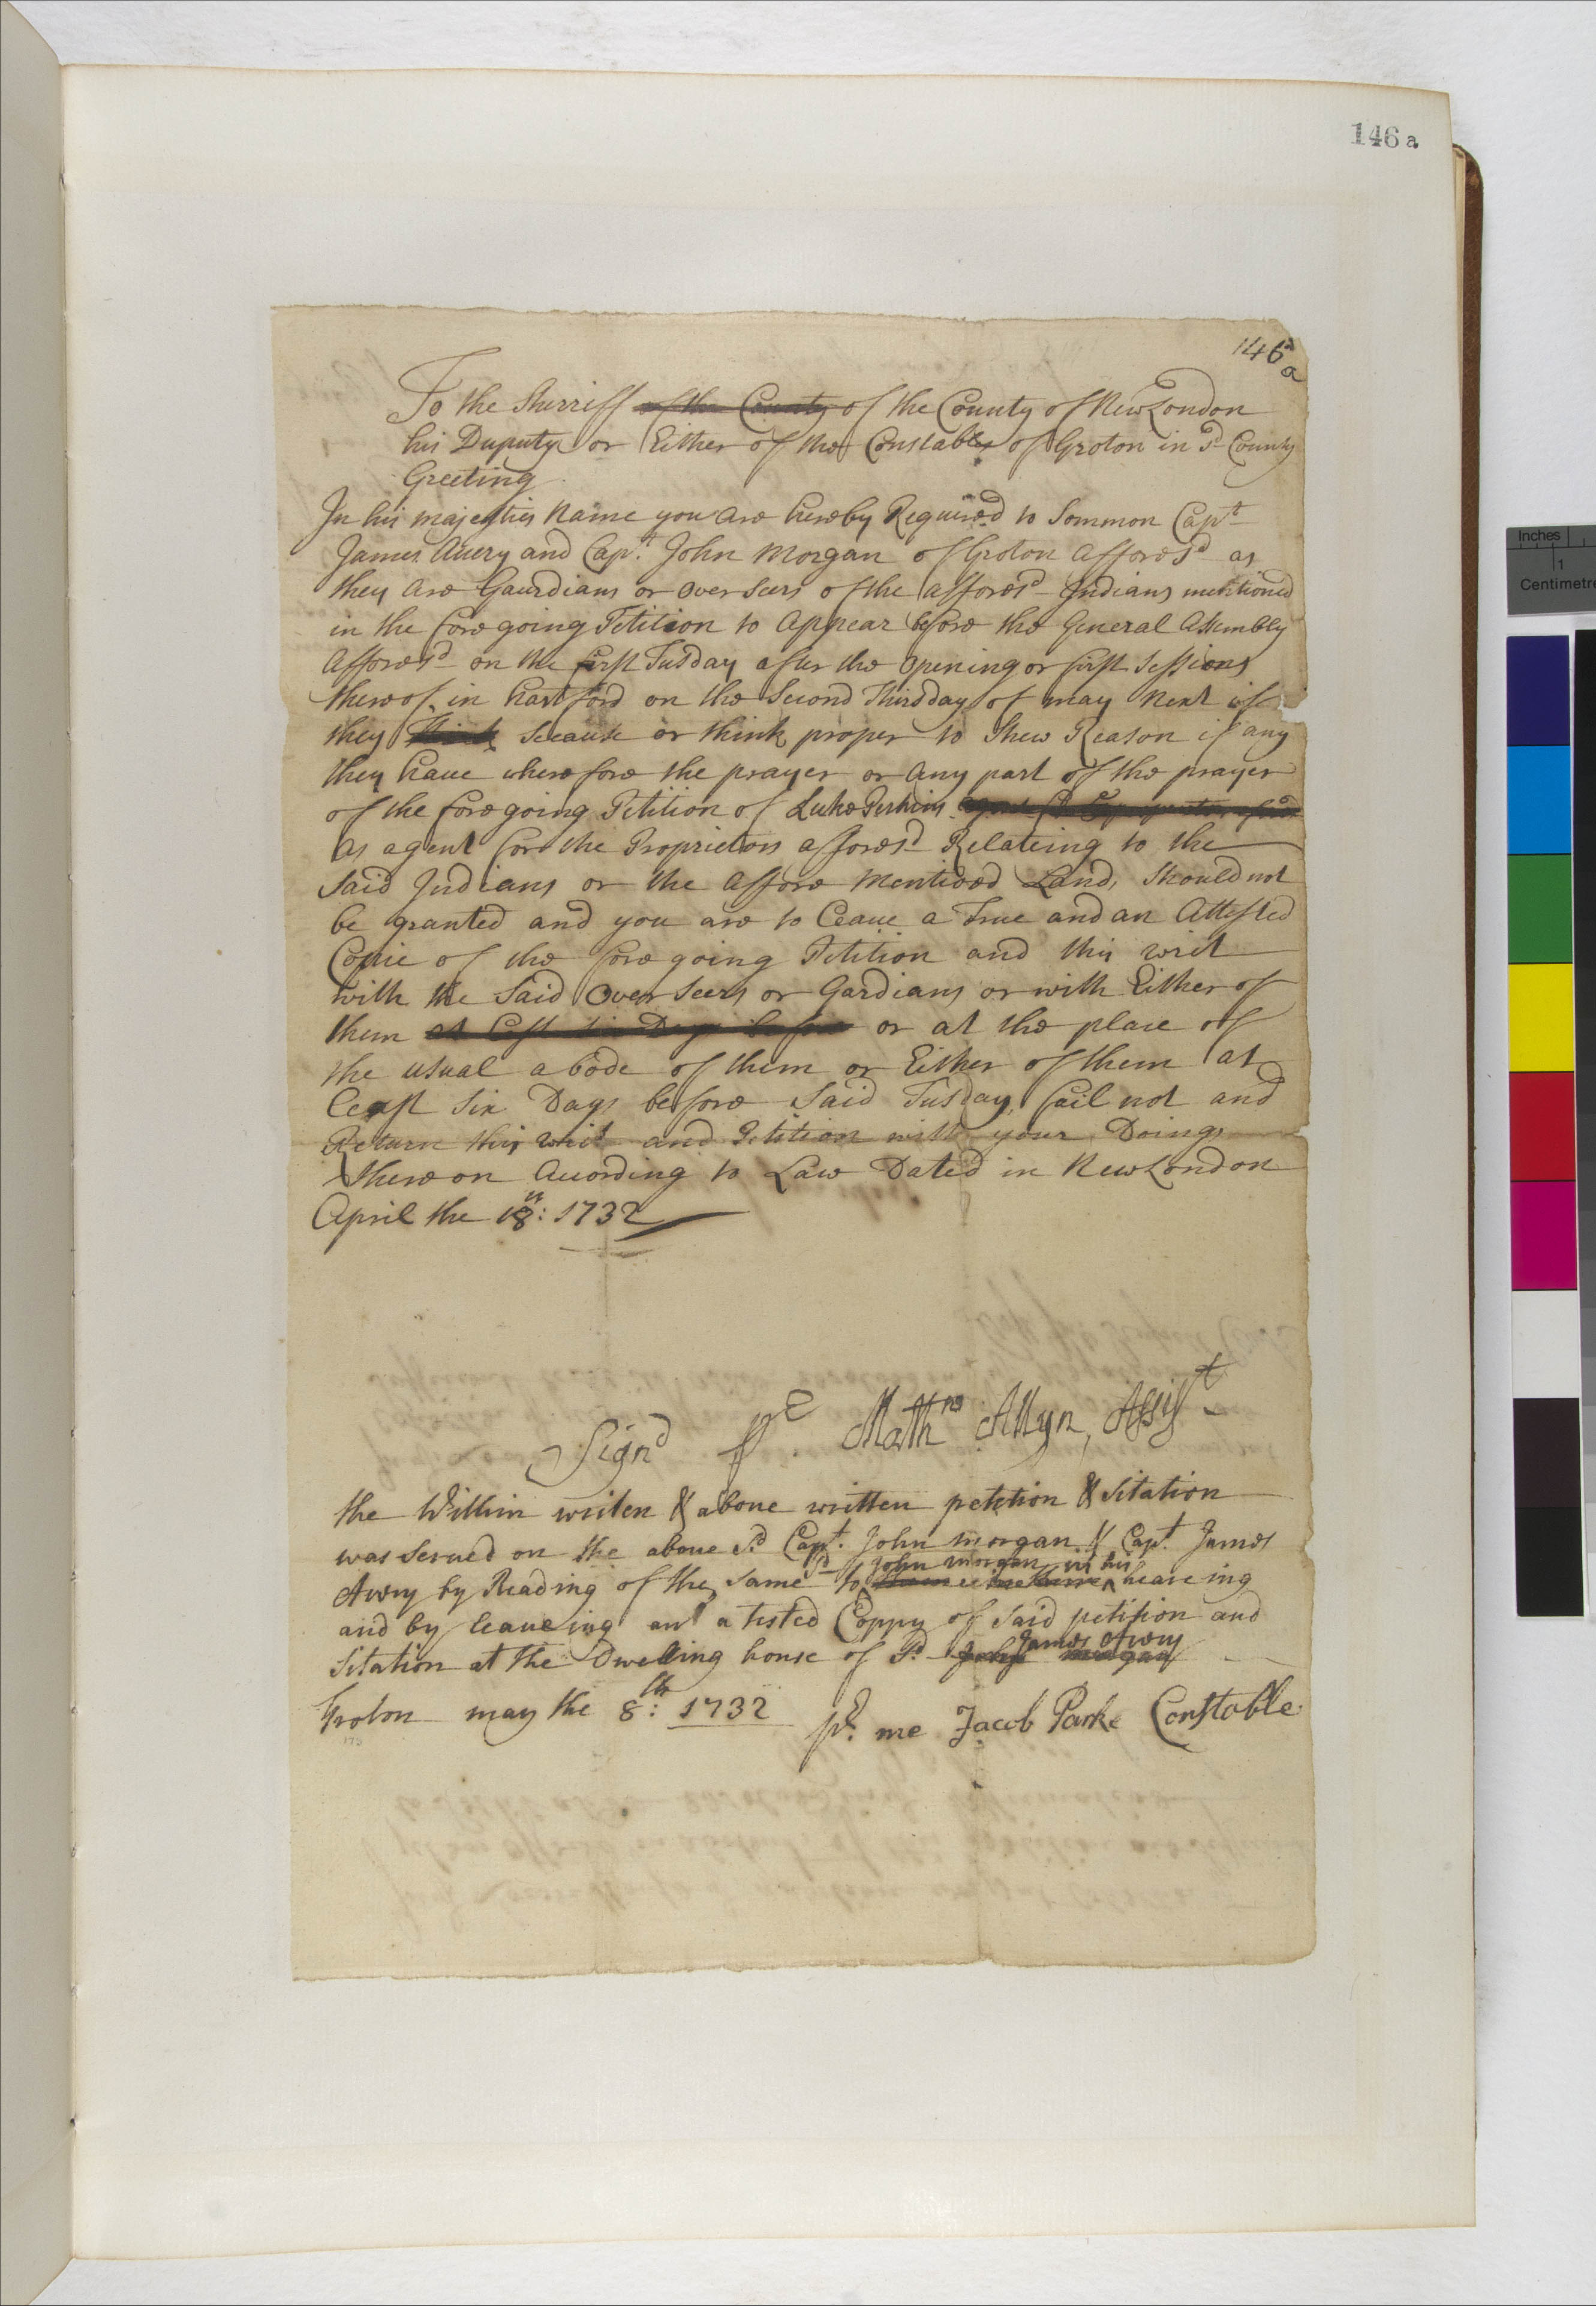 146 a
146a
To the Sherriff of the County of the County of New London
his Duputy or Either of the Constables of Groton in sd County
Greeting
In his majesties Name you are hereby Required to Sommon Capt
James Avery and Capt. John Morgan of Groton afforesd as
they are Gaurdians or over seers of the afforesd Indians mentioned
in the fore going Petition to Appear before the General Assembly
afforesd on the first Tusday after the opening or first sessions
thereof in hartford on the Second Thirsday of may Next if
they think Seecause or think proper to Shew Reason if any
they have wherefore the prayer or any part of the prayer
of the foregoing Petition of Luke Perkins
as agent for the Proprietors afforesd Relateing to the
said Indians or the affore Mentioed Land, should not
be granted and you are to leave a True and an Attested
Coppie of the fore going Petition and this writ
with the said Over Seers or Gardians or with Either of
them at lest six Days before or at the place of
the usual abode of them or Either of them at
least Six Days before said Tusday, fail not and
Return this writ and Petition with your Doings
thereon Acording to Law Dated in New London
April the 18th: 1732
Signd pr Mathw Allyn, Assist
the Within writen & above written petetion & Sitation
was Served on the above sd Capt. John morgan & Capt. James
Avery by Reading of the same to sd John morgan in his heareing
and by leaveing an a tested Coppy of said petition and
Sitation at the Dwelling house of sd John morgan James Avery
Groton may the 8th: 1732 pr. me Jacob Parke Constable